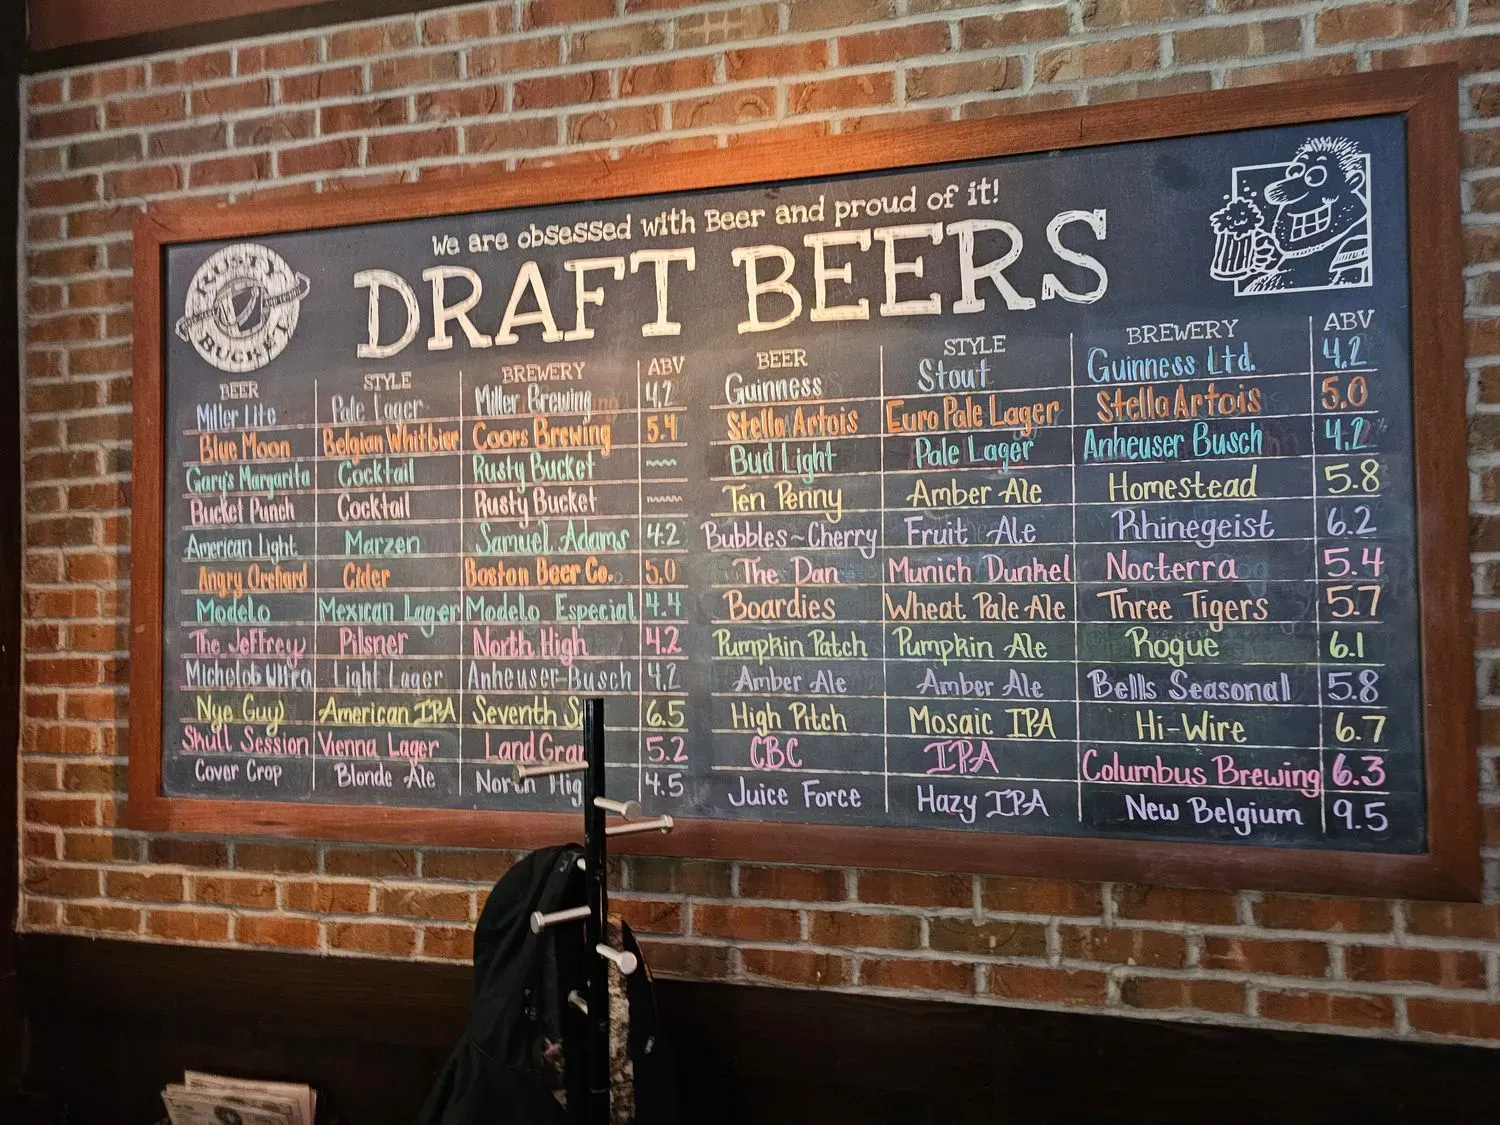 We are obsessed with Beer and proud of it!
DRAFT BEERS
RUSTY
BUCKET
BEER STYLE BREWERY ABV
Miller Lite Pale Lager Miller Brewing 4.2
Blue Moon Belgian Whitbier Coors Brewing 5.4
Gary's Margarita Cocktail Rusty Bucket ~~~
Bucket Punch Cocktail Rusty Bucket ~~~
American Light Marzen Samuel Adams 4.2
Angry Orchard Cider Boston Beer Co. 5.0
Modelo Mexican Lager Modelo Especial 4.4
The Jeffrey Pilsner North High 4.2
Michelob Ultra Light Lager Anheuser-Busch 4.2
Nye Guy American IPA Seventh S 6.5
Skull Session Vienna Lager Land Gran 5.2
Cover Crop Blonde Ale North Hig 4.5
BEER STYLE BREWERY ABV
Guinness Stout Guinness Ltd. 4.2
Stella Artois Euro Pale Lager Stella Artois 5.0
Bud Light Pale Lager Anheuser Busch 4.2
Ten Penny Amber Ale Homestead 5.8
Bubbles~Cherry Fruit Ale Rhinegeist 6.2
The Dan Munich Dunkel Nocterra 5.4
Boardies Wheat Pale Ale Three Tigers 5.7
Pumpkin Patch Pumpkin Ale Rogue 6.1
Amber Ale Amber Ale Bells Seasonal 5.8
High Pitch Mosaic IPA Hi-Wire 6.7
CBC IPA Columbus Brewing 6.3
Juice Force Hazy IPA New Belgium 9.5